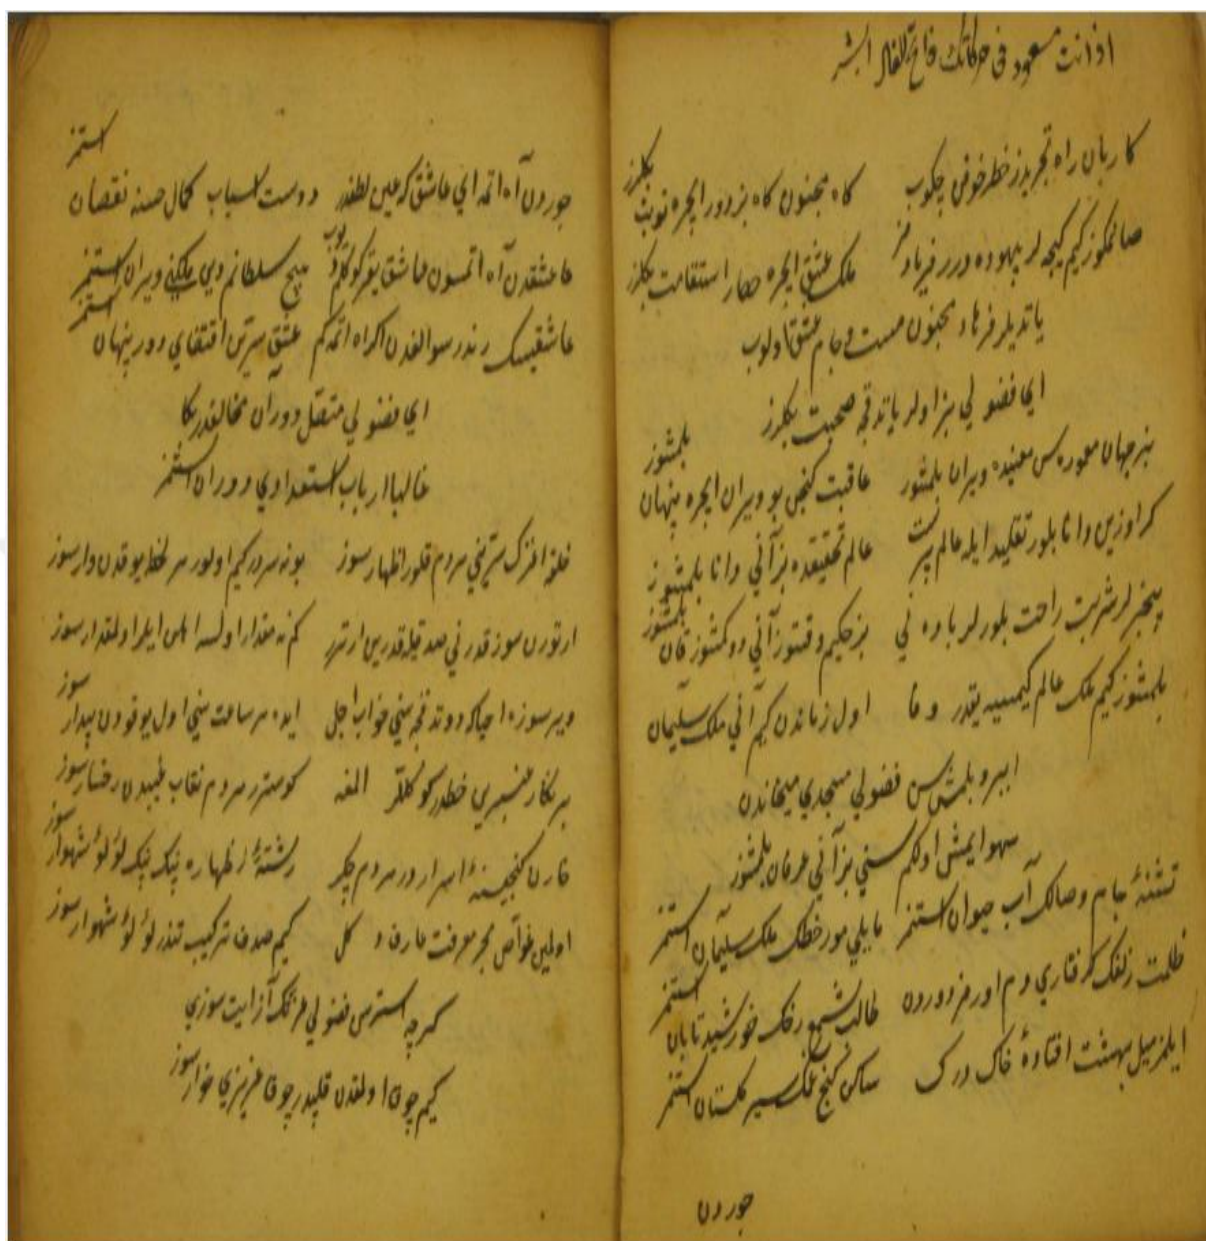 کاربان راه تجریدز خطر خوفی چکوب کاه مجنون کاه بز دور ایچره نوبت بکلرز
صانمکوز کیم کیجه لر بیهوده در فریادمز ملک عشق ایچره حصار استقامت بکلرز
یاتدیلر فرهاد و مجنون مست جام عشق اولوب
ای فضولی بز اولر یاتدقجه صحبت بکلرز
بز جهان معموره سن معنیده ویران بلمشوز عاقبت کنجن بو ویران ایچره پنهان بلمشوز
کر اوزین دانا بلور تقلید ایله عالم پرست عالم تحقیقده بز آنی دانا بلمشوز
بیخبرلر شربت راحت بلورلر باده نی بز حکیم وقتوز آنی دوکمشوز قان بلمشوز
بلمشوز کیم ملک عالم کیمسیه یقدر وفا اول زماندن کیم آنی ملک سلیمان
آیرو بلمش سن فضولی مسجدی میخانه دن
سهو ایمش اولکم سنی بز آنی عرفان بلمشوز
تشنهٔ جام وصالک آب حیوان استمز مایلی مور خطک ملک سلیمان استمز
ظلمت زلفک کرفتاری دم اورمز دوردن طالب شمع رخک خورشید تابان استمز
ایلمز میل بهشت افتادهٔ خاک درک ساکن کنج ملک سیر کلستان استمز
جوردن
جوردن آه اتمه ای عاشق که عین لطفدر دوست اسباب کمال حسنه نقصان استمز
عاشقدن آه اتمسون عاشق یقر کوکلم دیوب هیچ سلطانم دیی ملکنی ویران استمز
عاشقیسک رندر سوالفدن اکراه اتمه کم عشق سرتس اقتضای دور پنهان استمز
ای فضولی متصل دوران مخالفدر بکا
غالبا ارباب استعدادی دوران استمز
خلقه اغزک سرینی هر دم قلور اظهار سوز بو نه سردر کیم اولور هر لحظه یوقدن وار سوز
ارتورن سوز قدرنی صدقیله قدرین ارترر کم نه مقدار اولسه اهلن ایلر اولمقدار سوز
ویر سوزه احیا که دوتدقجه سنی خواب اجل ایده هر ساعت سنی اول یوقودن بیدار سوز
بر نکار عنبرین خطدر کوکللر المغه کوسترر هر دم نقاب غیبدن رخسار سوز
خازن کنجینهٔ اسراردر هر دم چکر رشتهٔ اظهاره بیک بیک لؤلؤ شهوار سوز
اولمین غواص بحر معرفت عارف دکل کیم صدف ترکیب تندر لؤلؤ شهوار سوز
کرچه استرسن فضولی عزتک آز ایت سوزی
کیم چوق اولمقدن قلپدر چوق عزیزی خوار سوز